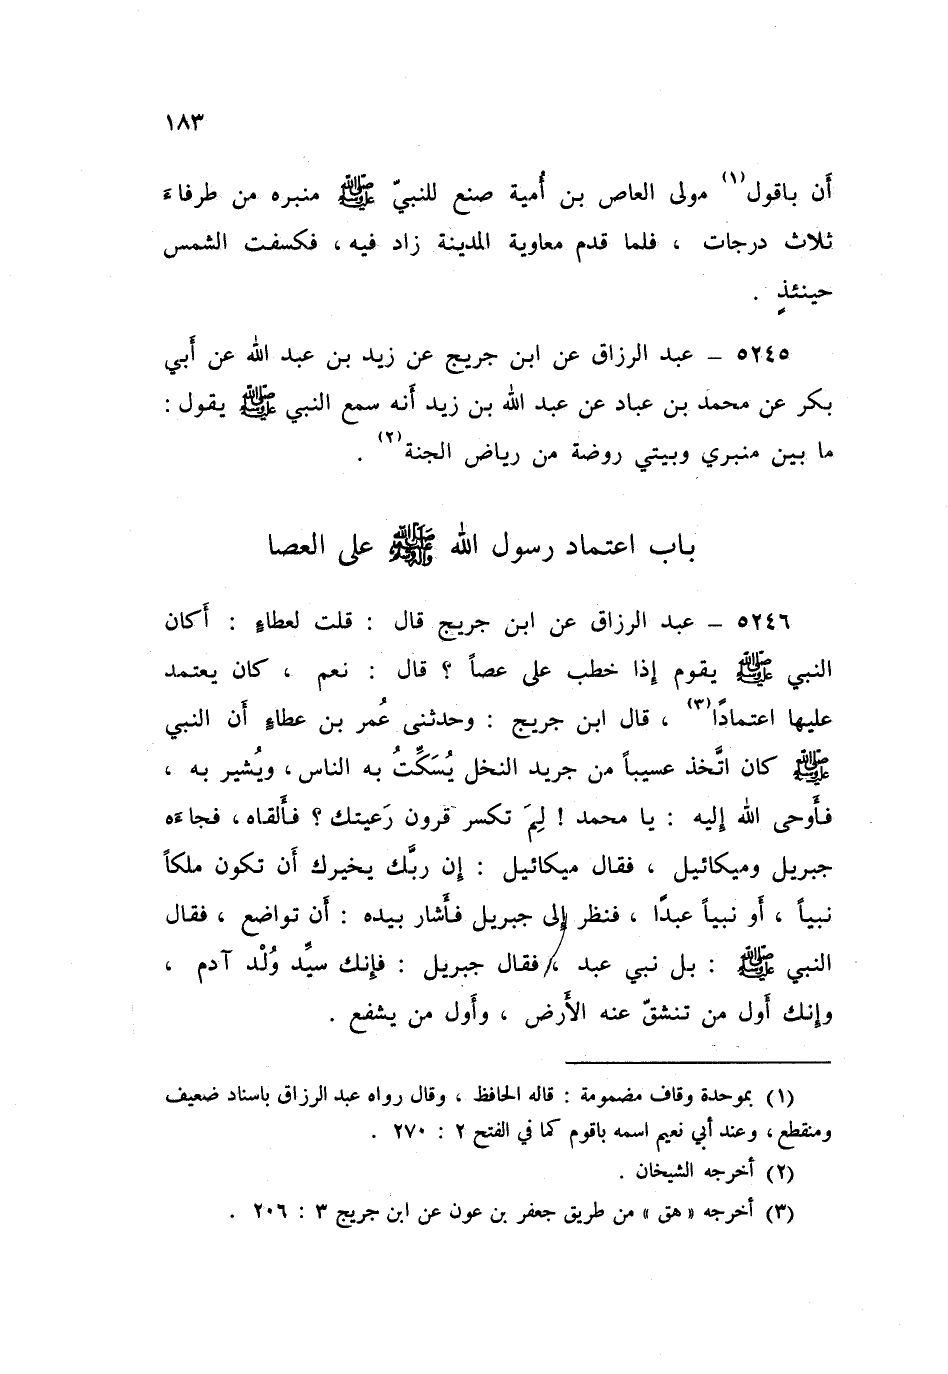 ١٨٣
أَن باقول(١) مولى العاص بن أُمية صنع للنبيّ ﷺ منبره من طرفاءَ
ثلاث درجات ، فلما قدم معاوية المدينة زاد فيه، فكسفت الشمس
حينئذٍ .
٥٢٤٥ – عبد الرزاق عن ابن جريج عن زيد بن عبد الله عن أَبي
بكر عن محمد بن عباد عن عبد الله بن زيد أَنه سمع النبي ﷺ يقول :
ما بين منبري وبيتي روضة من رياض الجنة(٢) .
باب اعتماد رسول الله ﷺ على العصا
٥٢٤٦ – عبد الرزاق عن ابن جريج قال : قلت لعطاءٍ : أَكان
النبي ﷺ يقوم إِذا خطب على عصاً ؟ قال : نعم ، كان يعتمد
عليها اعتمادًا(٣) ، قال ابن جريج : وحدثنى عُمر بن عطاءٍ أَن النبي
ﷺ كان اتَّخذ عسيباً من جريد النخل يُسَكِّتُ به الناس، ويُشير به ،
فأَوحى الله إِليه : يا محمد ! لِمَ تكسر قرون رَعيتك ؟ فأَلقاه، فجاءَه
جبريل وميكائيل ، فقال ميكائيل : إِن ربَّك يخيرك أَن تكون ملكاً
نبياً ، أَو نبياً عبدًا ، فنظر إِلى جبريل فأَشار بيده : أَن تواضع ، فقال
النبي ﷺ : بل نبي عبد ، فقال جبريل : فإِنك سيِّد وُلْد آدم ،
وإِنك أَول من تنشقّ عنه الأَرض ، وأَول من يشفع .
(١) بموحدة وقاف مضمومة : قاله الحافظ ، وقال رواه عبد الرزاق باسناد ضعيف
ومنقطع، وعند أبي نعيم اسمه باقوم كما في الفتح ٢ : ٢٧٠ .
(٢) أخرجه الشيخان .
(٣) أخرجه « هق » من طريق جعفر بن عون عن ابن جريج ٣ : ٢٠٦ .